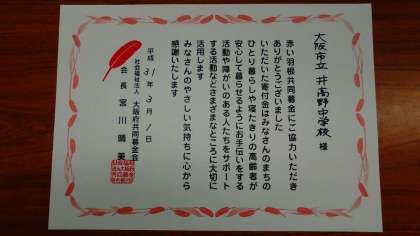 大阪市立 井高野中学校 様
赤い羽根共同募金にご協力いただき
ありがとうございました
いただいた寄付金はみなさんのまちの
ひとり暮らしや寝たきりの高齢者が
安心して暮らせるようにお手伝いをする
活動や障がいのある人たちをサポート
する活動などさまざまなところに大切に
活用します
みなさんのやさしい気持ちに心から
感謝いたします
平成31年3月1日
社会福祉法人 大阪府共同募金会
会長 宮川晴美